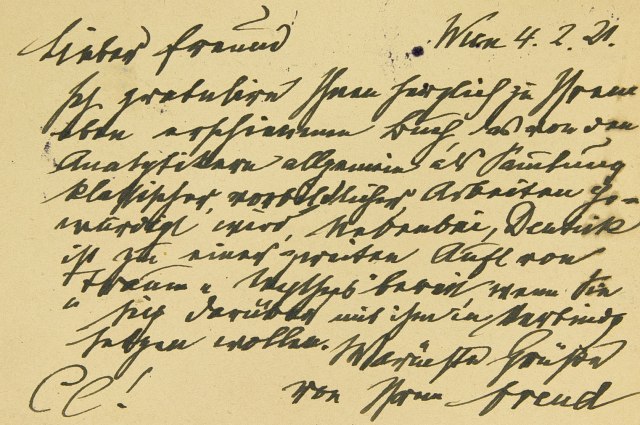 Wien 4. 2. 21.
Lieber Freund
Ich gratuliere Ihnen herzlich zu Ihrem
eben erschienenen Buch das von den
Analytikern allgemein als Samlung
klassischer vorbildlicher Arbeiten ge-
würdigt wird. Nebenbei, Deuticke
ist zu einer zweiten Aufl von
"Traum u Mythus" bereit wenn Sie
sich darüber mit ihm in Verbindg
setzen wollen. Warmste Grüße
von Ihrem Freud